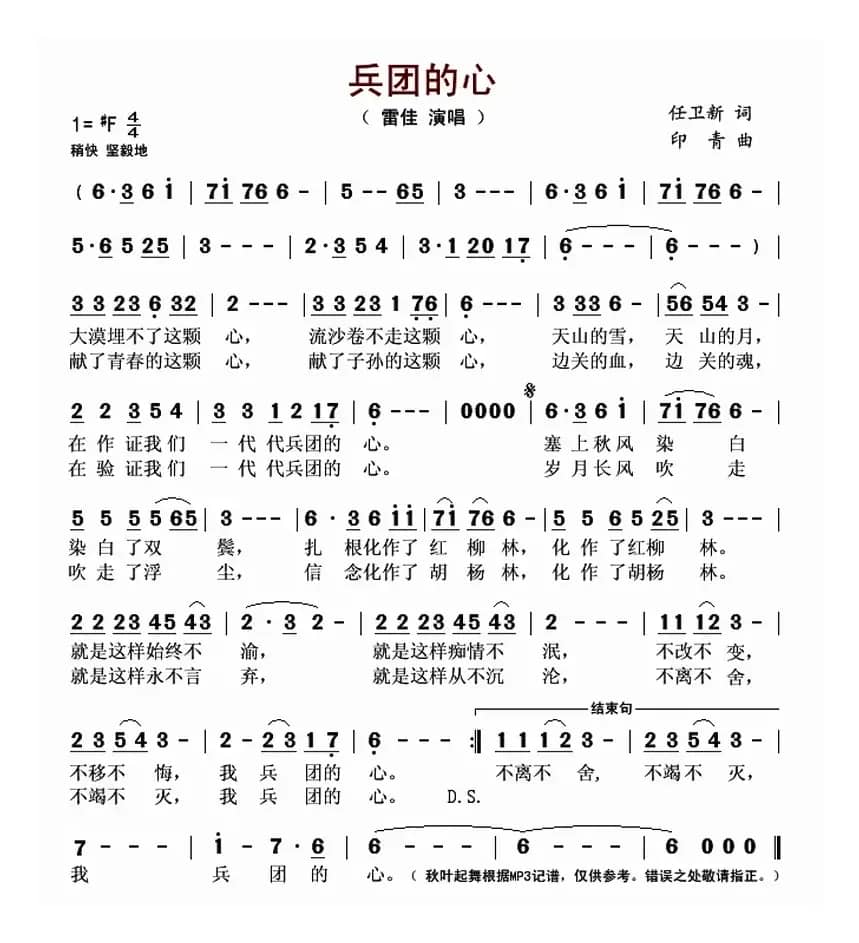 兵团的心
( 雷佳 演唱 )
任卫新 词
1= #F 4/4
印 青 曲
稍快 坚毅地
( 6·3 6 i | 7i 76 6 - | 5 - - 65 | 3 - - - | 6·3 6 i | 7i 76 6 - |
5·6 5 25 | 3 - - - | 2·3 5 4 | 3·1 20 17 | 6 - - - | 6 - - ) |
3 3 23 6 32 | 2 - - - | 3 3 23 1 76 | 6 - - - | 3 33 6 - | 56 54 3 - |
大漠埋不了这颗 心， 流沙卷不走这颗 心， 天山的雪， 天 山的月，
献了青春的这颗 心， 献了子孙的这颗 心， 边关的血， 边 关的魂，
2 2 3 5 4 | 3 3 1 2 17 | 6 - - - | 0000 | 6·3 6 i | 7i 76 6 - |
在 作 证我们 一代 代兵团的 心。 塞 上秋风 染 白
在 验 证我们 一代 代兵团的 心。 岁 月长风 吹 走
5 5 5 5 65 | 3 - - - | 6 · 3 6 i i | 7i 76 6 - | 5 5 6 5 25 | 3 - - - |
染 白 了双 鬓， 扎 根化作了 红 柳 林， 化 作 了红柳 林。
吹 走 了浮 尘， 信 念化作了 胡 杨 林， 化 作 了胡杨 林。
2 2 23 45 43 | 2 · 3 2 - | 2 2 23 45 43 | 2 - - - | 11 12 3 - |
就是这样始终不 渝， 就是这样痴情不 泯， 不改不 变，
就是这样永不言 弃， 就是这样从不沉 沦， 不离不 舍，
结束句
2 3 5 4 3 - | 2 - 2 3 1 7 | 6 - - - :| 1 1 1 2 3 - | 2 3 5 4 3 - |
不移不 悔， 我 兵 团的 心。 不离不 舍, 不竭不 灭，
不竭不 灭， 我 兵 团的 心。 D.S.
7 - - - | i - 7 · 6 | 6 - - - | 6 - - - | 6 0 0 0 ||
我 兵 团 的 心。 ( 秋叶起舞根据MP3记谱，仅供参考。错误之处敬请指正。)